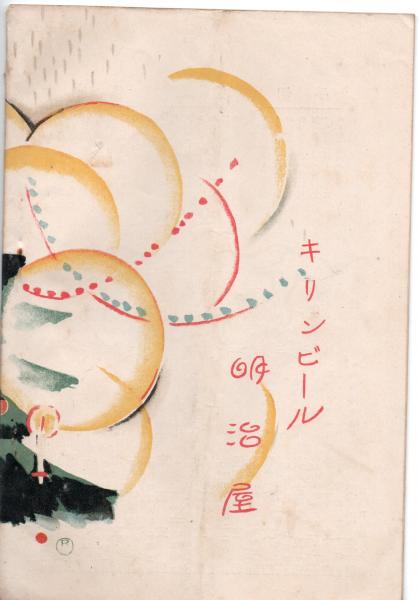 キリンビール
明治屋